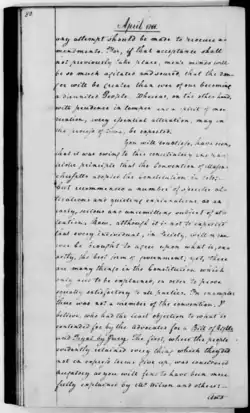 80
April 1788.
any attempt should be made to receive a-
mendments. For, if that acceptance shall
not previously take place, men's minds will
be so much agitated and soured, that the dan-
ger will be greater than ever of our becoming
a disunited People. Whereas, on the other hand,
with prudence in temper and a spirit of mod-
eration, every essential alteration, may in
the process of time, be expected.
You will doubtless, have seen,
that it was owing to this conciliatory and pat-
riotic principle that the Convention of Massa-
chusetts adopted the Constitution in toto;
but recommended a number of specific al-
terations and quieting explanations as an
early, serious and unremitting subject of at-
tention. Now, although it is not to be expected
that every individual, in Society, will or can
ever be brought to agree upon what is, ex-
actly, the best form of government; yet, there
are many things in the Constitution which
only need to be explained, in order to prove
equally satisfactory to all parties. For example:
there was not a member of the convention, I
believe, who had the least objection to what is
contended for by the Advocates for a Bill of Rights
and Tryal by Jury. The first, where the people
evidently retained every thing which they did
not in express terms give up, was considered
nugatory as you will find to have been more
fully explained by Mr Wilson and others:—